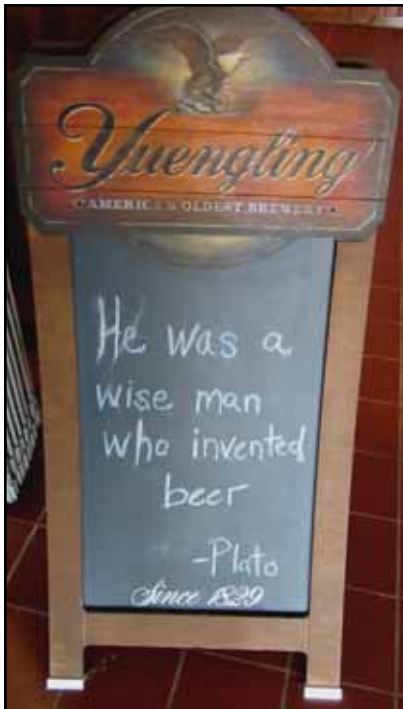 Yuengling
AMERICA'S OLDEST BREWERY
He was a
wise man
who invented
beer
-Plato
Since 1829